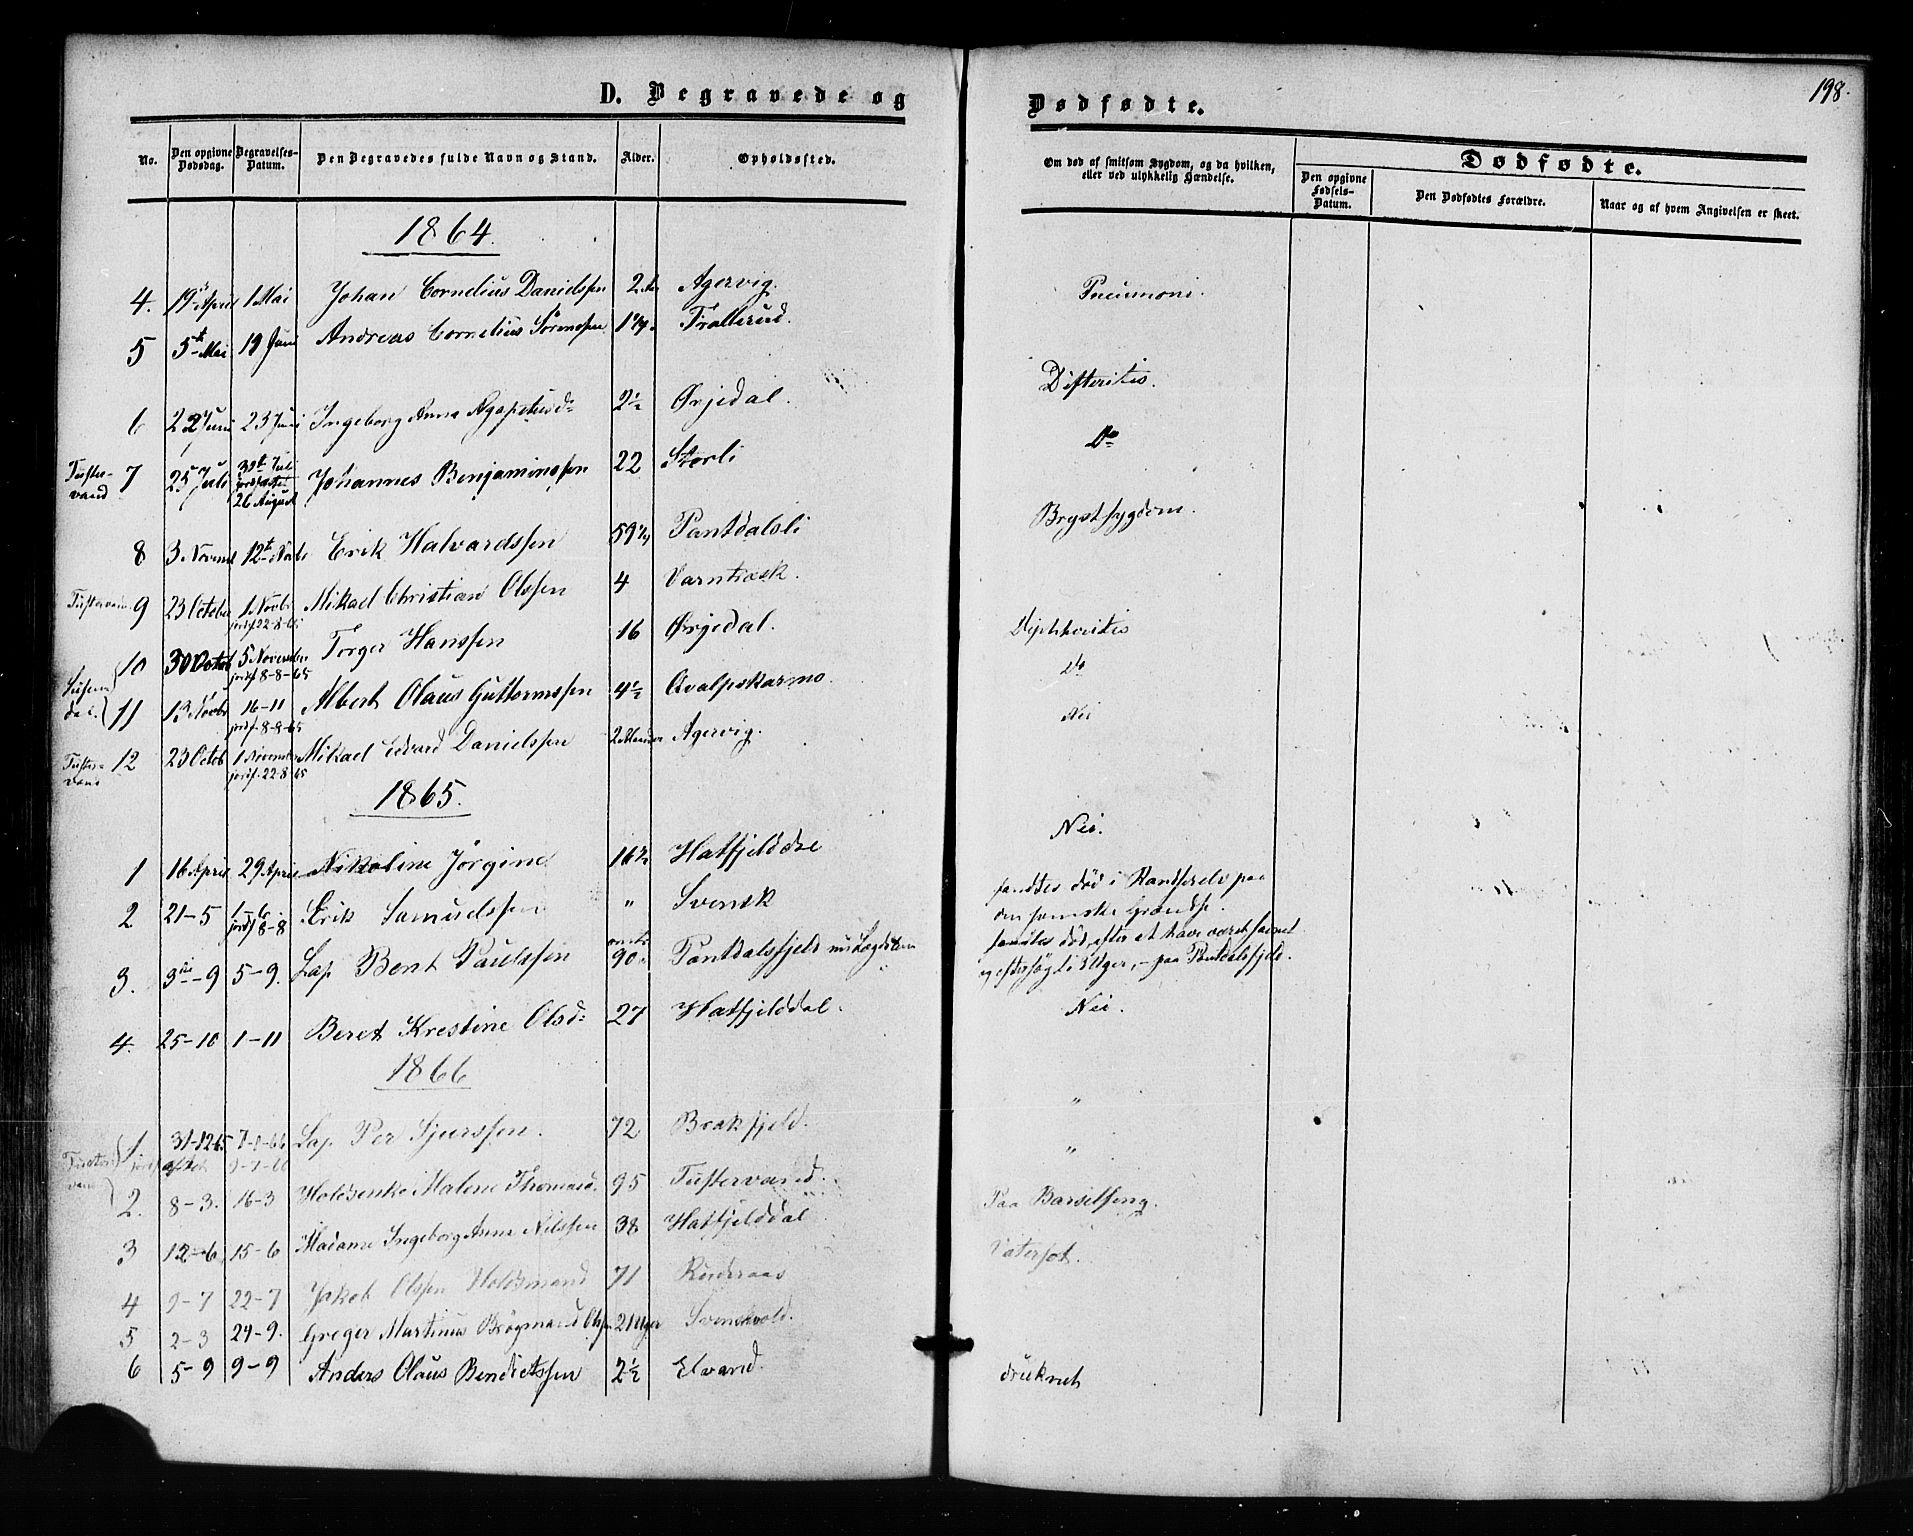 198.
D. Begravede og Dødfødte.
No. | Den opgivne Dødsdag. | Begravelses-Datum. | Den Begravedes fulde Navn og Stand. | Alder. | Opholdssted. | Om død af smitsom Sygdom, og da hvilken, eller ved ulykkelig Hændelse. | Dødfødte. | Den opgivne Fødsels-Datum. | Den Dødfødtes Forældre. | Naar og af hvem Angivelsen er skeet.
1864.
4. 19 April 1 Mai Johan Cornelius Danielssen 2 Agervig. Pneumoni.
5 5t Mai 19 Juni Andreas Cornelius Sörenssen 1 Trallerud.
6 22 Juni 25 Juni Ingeborg Anna Agapetusd= 2½ Ørjedal. Difteritis.
Tuster-vand 7 25 Juli 30t Juli jordfæstet 26 August Johannes Benjaminssen 22 Storli Do
8 3 Novemb 12t Novb Erik Halvardssen 59 Pantdalsli Brystsygdom.
Tustervand 9 23 October 1 Novbr jordf. 22-8-65 Mikael Christian Olssen 4 Varntræsk.
Susen-dal. 10 30 Octob 5 November jordf 8-8-65 Torger Hanssen 16 Ørjedal. Diphtheritis
11 13 Novbr 16-11 jordf. 8-8-65 Albert Olaus Guttormssen 4½ Qvalpskarmo. Do
Tuster-vand 12 23 Octob 1 November jordf. 22-8-65 Mikael Edvard Danielssen 2 Maaneder Agervig. Nei
1865.
1 16 April 29 April Nikoline Jörgine 16 Hatfjelddal Nei.
2 21-5 1-6 jordf 8-8 Erik Samuelssen " Svensk fandtes död i Ranserelv paa den svenske Grændse.
3. 3die-9 5-9. Lap Bent Paulssen omtr 90 Pantdalsfjeld fandtes död, efter at have været savnet og eftersögt i Uger, - paa Pantdalsfjeld.
4. 25-10 1-11 Beret Kristine Olsd= 27 Hatfjelddal. Nei.
1866
Tuster-vand 1 31-12-65 7-1-66 Lap Per Sjurssen. 72 Brakfjeld. "
2. 8-3. 16-3 Holdsenke Malene Thomasd. 95 Tustervand. "
3 12-6 15-6 Madame Ingeborg Anna Nilssen 38 Hatfjelddal Paa Barselseng.
4 9-7 22-7 Jakob Olssen Holdsmand 71 Vatersot.
5 2-3 24-9. Greger Martinus Brögmand Olssen 2 Uger Svenskvold.
6 5-9 9-9 Anders Olaus Bendictssen 2½ Elvand. druknet